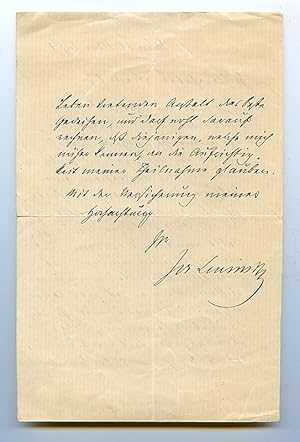 Leben tretenden Anstalt das beste
Gedeihen, und darf wohl darauf
rechnen, daß diejenigen, welche mich
näher kennen an die Aufrichtig-
keit meiner Theilnahme glauben.
Mit der Versicherung meiner
Hochachtung
Ihr
Jos Lewinsky